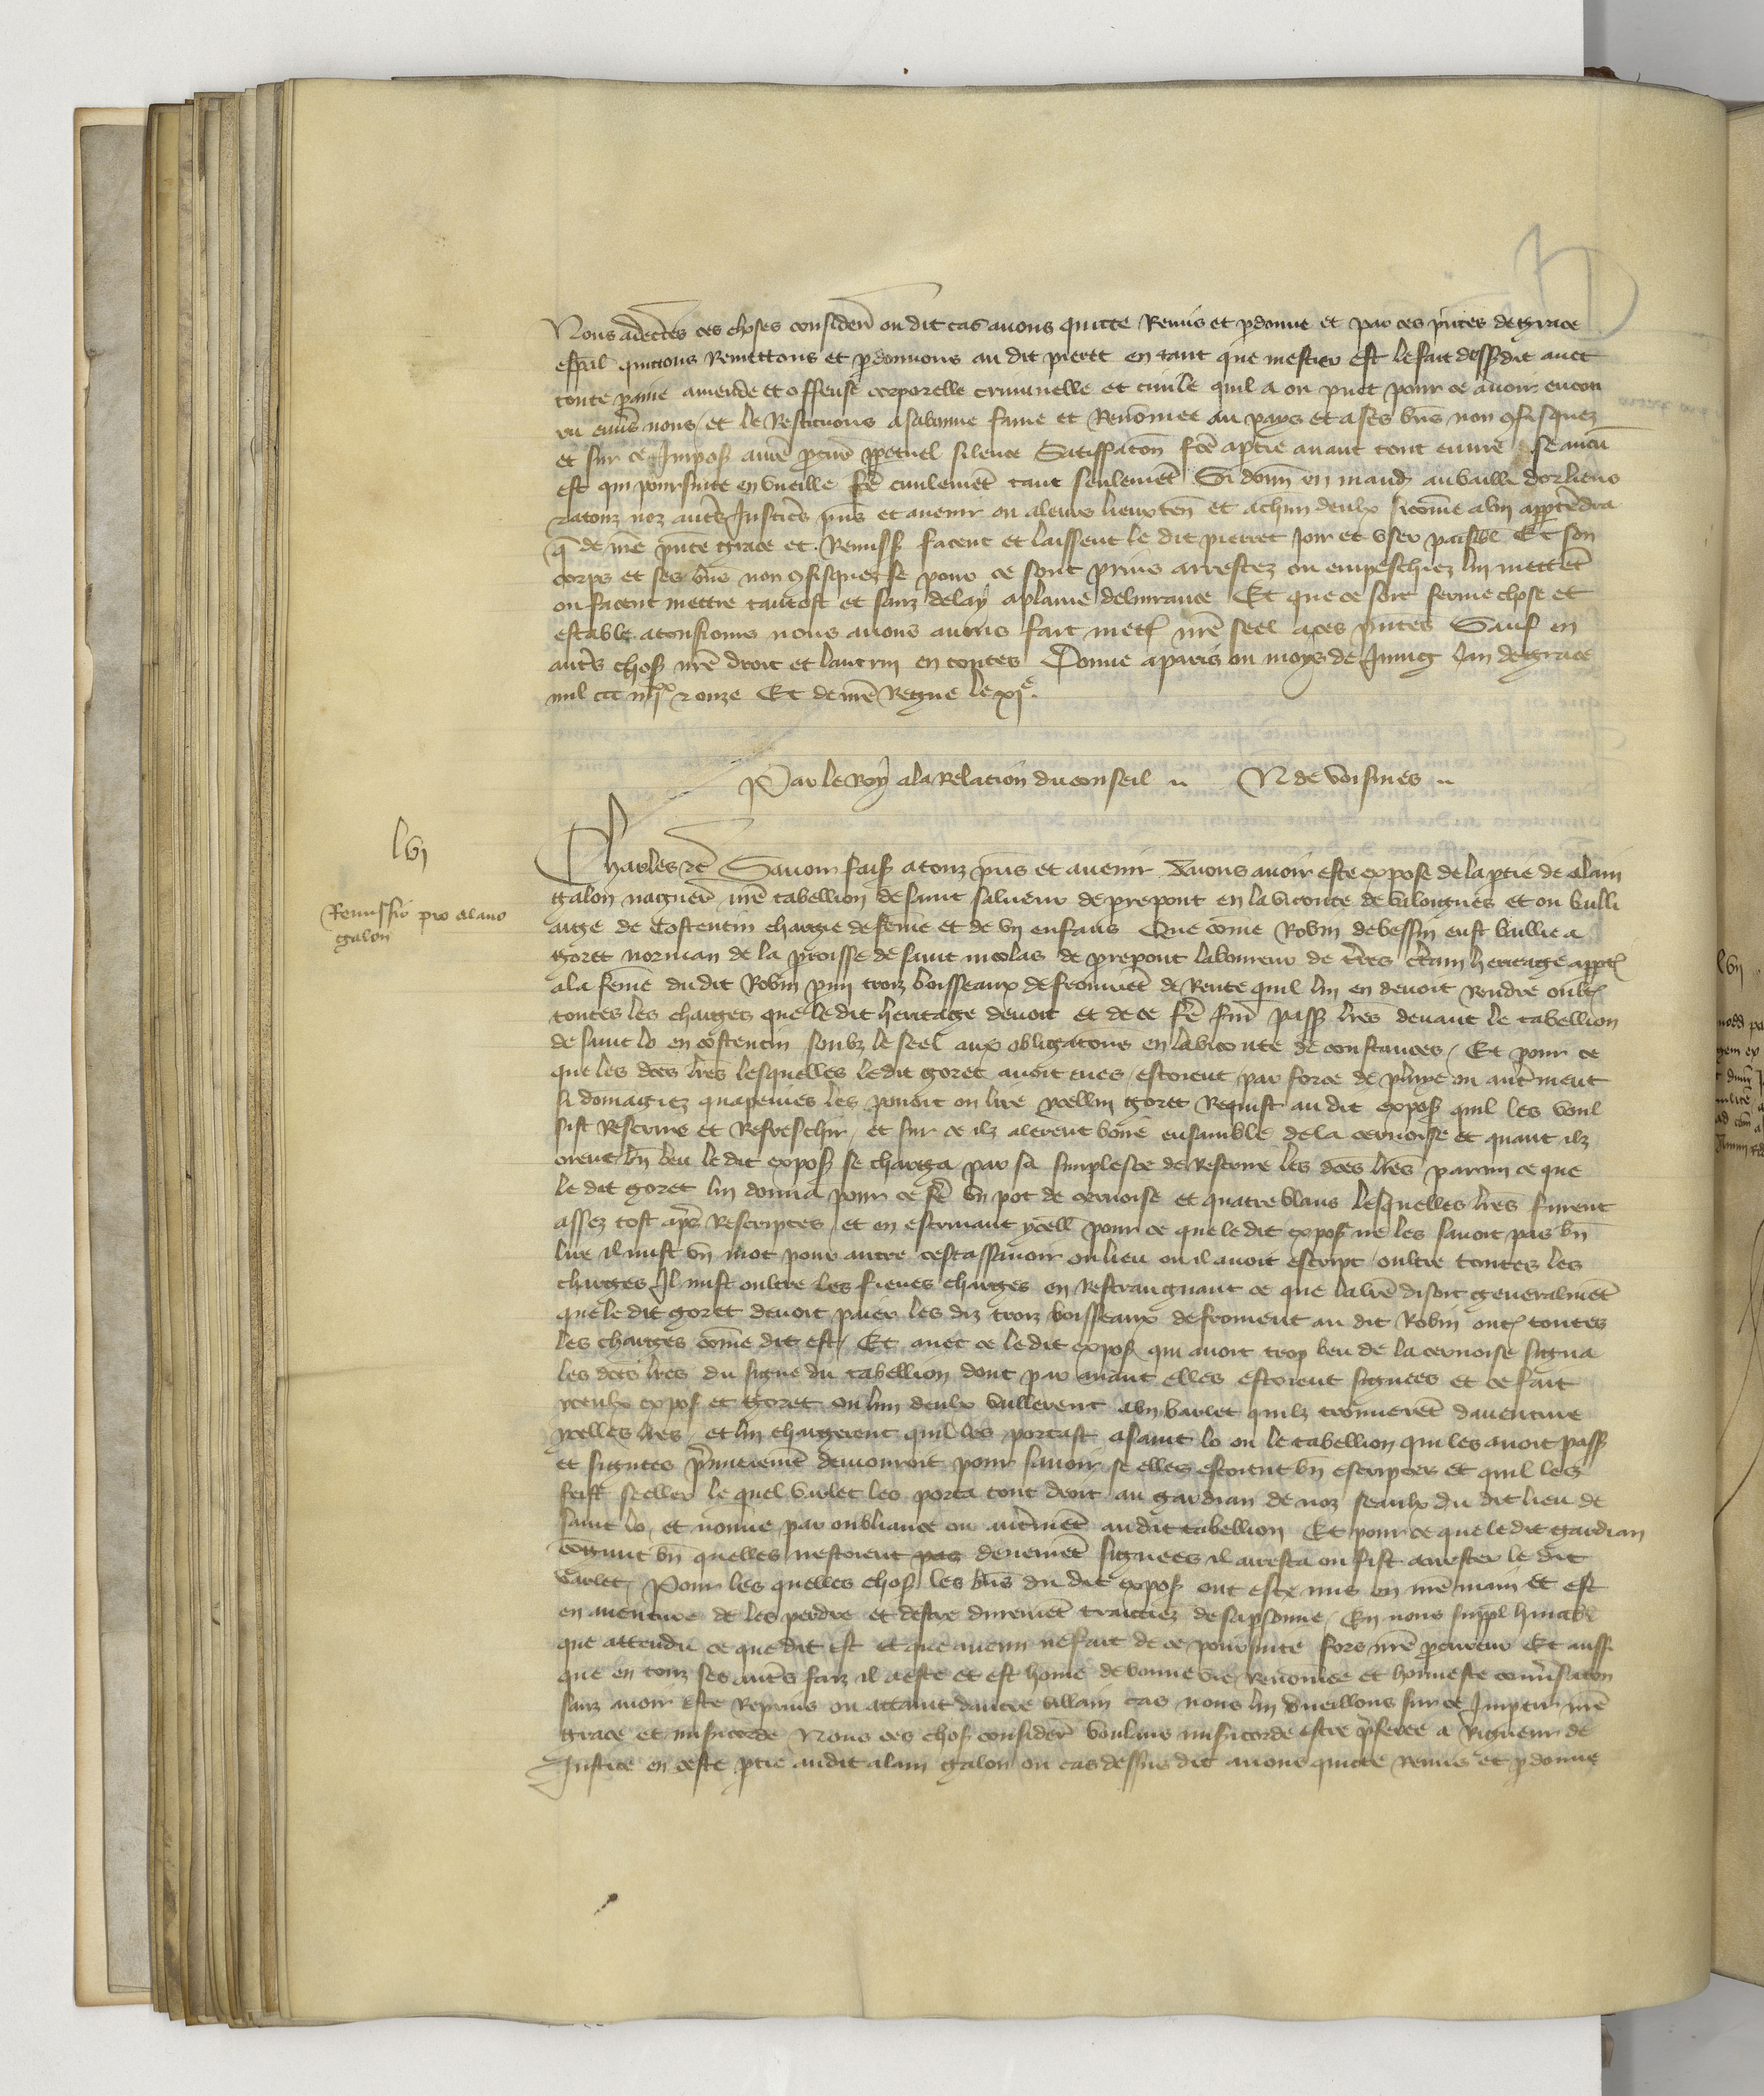 Nous adecertes ces choses considere ou dit cas avons quicte Remis et pdonne et par ces pntes de grace
espal quictons Remettons et pdonnons au dit pierre en tant que mestier est le fait dessusdit avec
toute paine amende et offense corporelle criminelle et civile quil a ou puet pour ce avoir encou
ru envs nous et le Restituons a sa bonne fame et Renomee au pays et a ses bns non 9fisquez
et sur ce Imposs a nre pcureur ppetuel silence Satisfacon fce a ptie avant tout euvre se aucu
est qui poursuite en vueille fe civilemet tant seulemet Si donn en mand au bailli dorliens
et a touz noz auts Justics pns et avenir ou a leurs lieuxten et a chun deulx sicome a lui apptendra
q de nre pnte grace et Remiss facent et laissent le dit pierret Joir et user paisibl Et son
corps et ses bns non 9fisquez se pour ce sont prins arrestez ou empeschiez lui mettet
ou facent mettre tantost et sanz delay a plaine delivrance Et que ce soit ferme chose et
estable a tousiours nous avons fait mett nre seel a ces pntes Sauf en
auts chos nre droit et lautruy en toutes Donne a paris ou moys de Juing lan de grace
mil ccc iiiixx et onze Et de nre Regne le xie.
Par le Roy a la Relacion du conseil .. N de voisines ..
lvj
Charles etc Savoir fais a touz pns et avenir Nous avoir este expose de la ptie de Alain
Remissio pro alano
galon
galon naguere nre tabellion de saint salveur de prepont en la viconte de valoignes et ou bailli
aige de Costentin chargie de feme et de un enfans Que come Robin de bessin eust baillie a
goret norman de la proisse de saint nicolas de prepont laboureur de tres ctain heritage appt
a la feme du dit Robin pmi troiz boisseaux de froumet de Rente quil lui en devoit rendre oult
toutes les charges que le dit heritage devoit et de ce fe fur pass lres devant le tabellion
de saint lo en costentin soubz le seel aux obligacons en la viconte de constances Et pour ce
que les dces lres lesquelles le dit goret avoit eues estoient par force de pluye ou autment
si domagiez qua peines les pouoit on lire ycellui goret Requist au dit expos quil les voul
sist Rescrire et Refreschir et sur ce ilz alerent boire ensamble de la cervoise et quant ilz
orent bn beu le dit expos se charga par sa simplesce de Rescrire les dces lres parmi ce que
le dit goret lui donna pour ce fe un pot de cervoise et quatre blans lesquelles lres furent
assez tost aps Rescriptes et en escrivant ycell pour ce que le dit expos ne les savoit pas bn
lire il mist un mot pour autre cestassavoir ou lieu ou il avoit escript oultre toutes les
charges Il mist oultre les sienes charges en restraignant ce que la lre disoit generalmet
que le dit goret devoit paier les diz troiz boisseaux de froment au dit Robin oult toutes
les charges come dit est Et avec ce le dit expos qui avoit trop beu de la cervoise signa
les dces lres du signe du tabellion dont par avant elles estoient signees et ce fait
yceulx expos et goret ou lun deulx baillerent a un varlet quilz trouveret daventure
ycelles lres et lui chargerent quil les portast a saint lo ou le tabellion qui les avoit pass
et signees pmieremet demouroit pour savoir se elles estoient bn escriptes et quil les
feist seeller le quel varlet les porta tout droit au gardian de noz seaulx du dit lieu de
saint lo et nonne par oubliance ou autmet au dit tabellion Et pour ce que le dit gardian
cogнut bn quelles nestoient pas deuemet signees il arresta ou fist arrester le dit
varlet Pour les quelles chos les bns du dit expos ont este mis en nre main et est
en aventure de les perdre et destre duremet traictiez de sa psonne En nous suppl humbl
que attendu ce que dit est et que aucun ne fait de ce poursuite fors nre pcureur Et auss
que en touz ses auts faiz il a este et est home de bonne vie Renomee et honneste conversacon
sanz avoir este Reprins ou attaint dautre villain cas nous lui vueillons sur ce Imptir nre
grace et misericorde Nous ces chos consider voulans misericorde estre pferee a Rigueur de
Justice en ceste ptie audit alain galon ou cas dessus dit avons quicte remis et pdonne